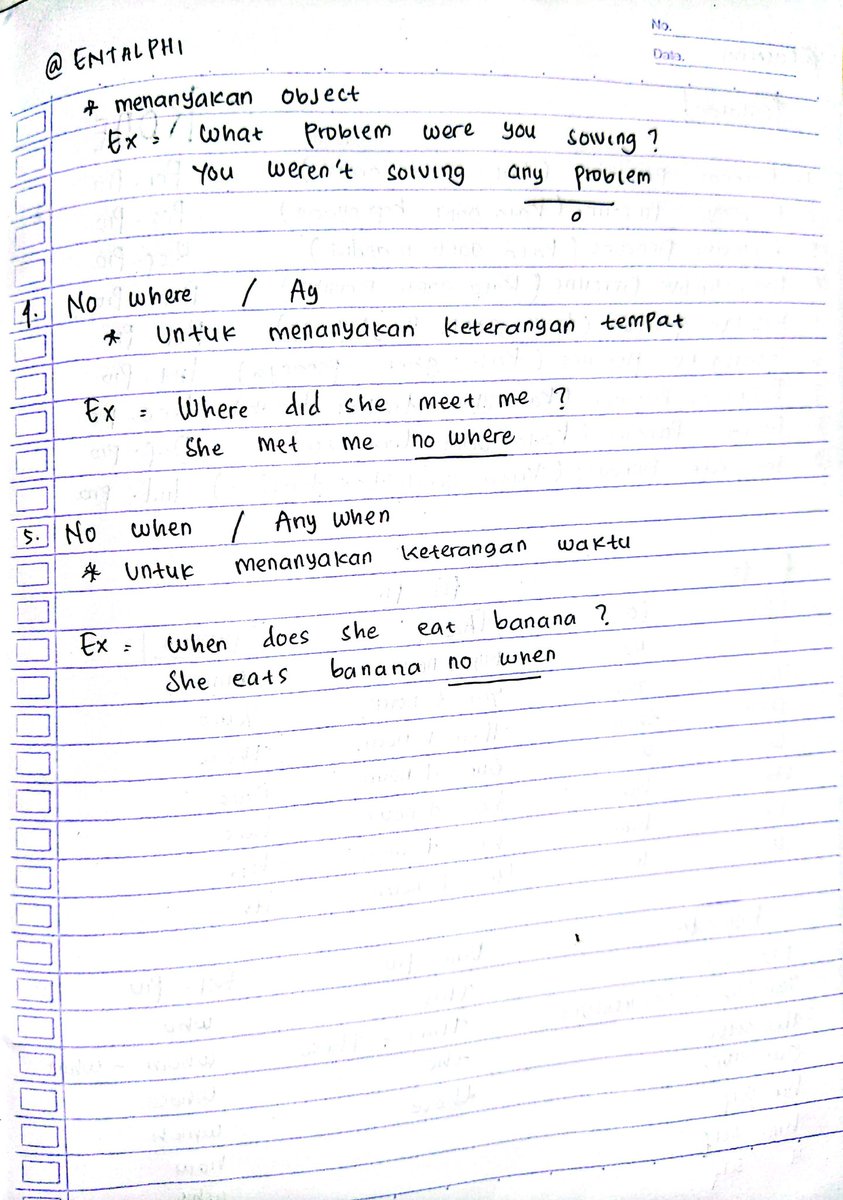 No.
Date.
@ ENTALPHI
* menanyakan object
Ex = What problem were you solving ?
You weren't solving any problem
O
4. No where / Ay
* Untuk menanyakan keterangan tempat
Ex = Where did she meet me ?
She met me no where
5. No when / Any when
* Untuk menanyakan keterangan waktu
Ex = When does she eat banana ?
She eats banana no when